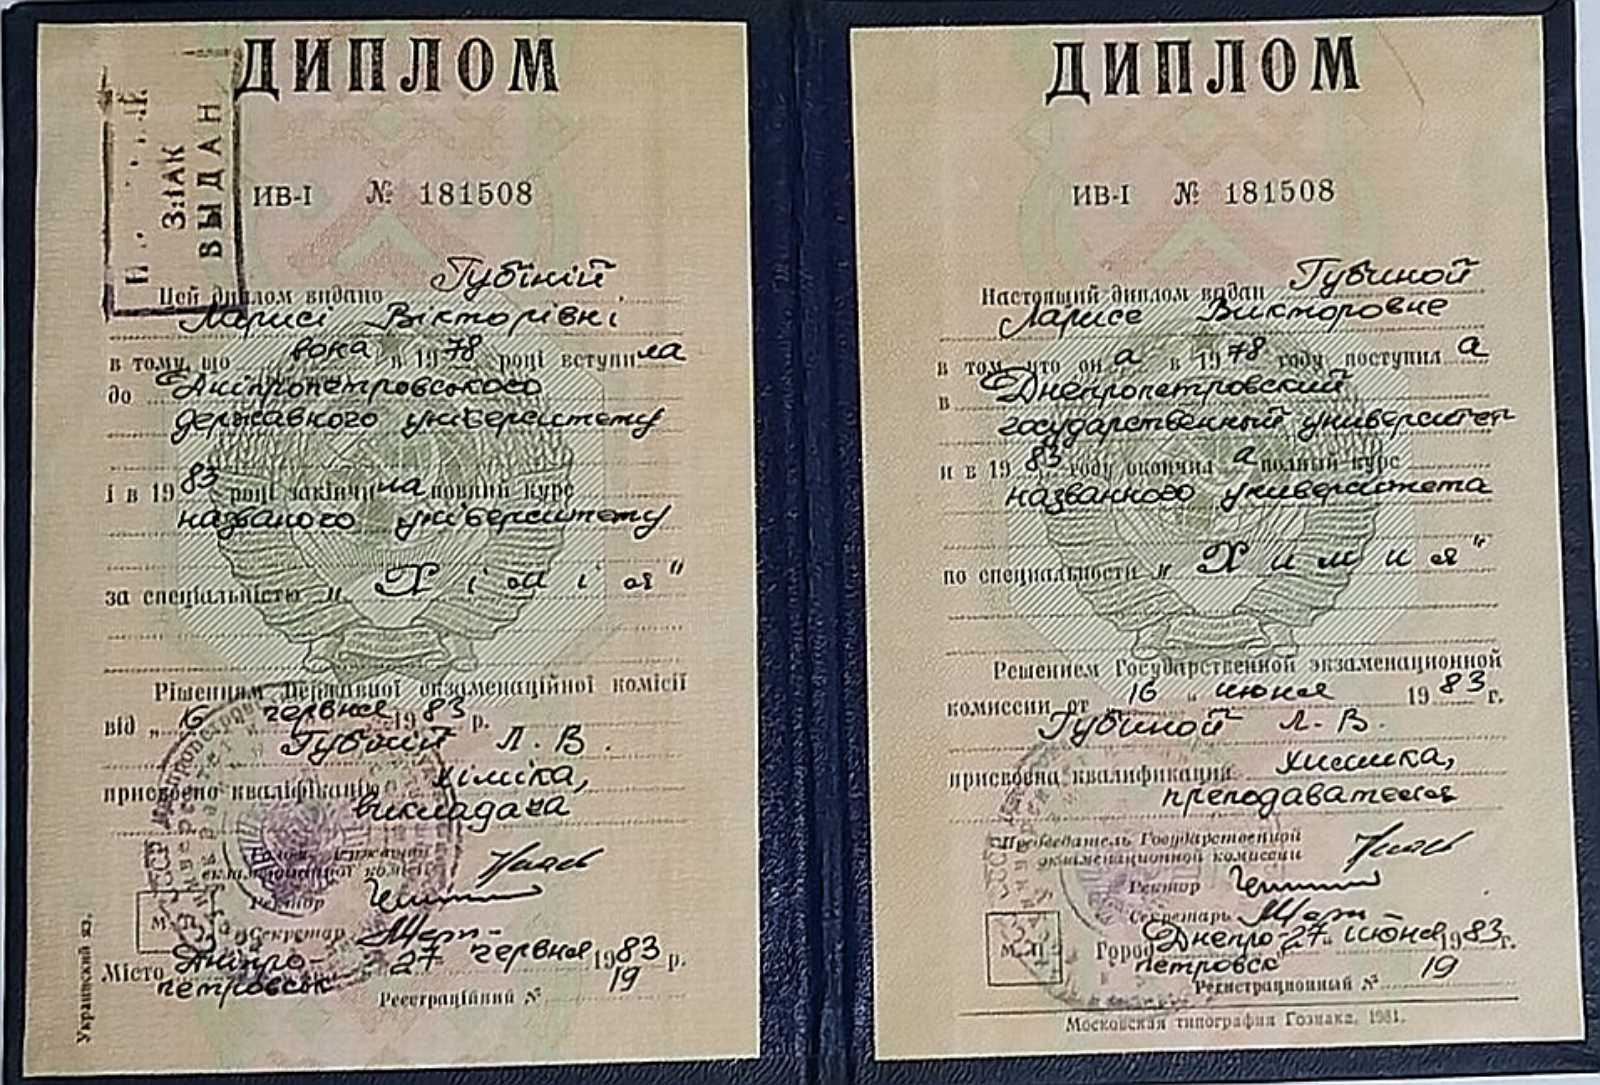 ДИПЛОМ
ЗНАК
ВЫДАН
ИВ-I № 181508
Цей диплом видано Губіній
Ларисі Вікторівні
в тому, що вона в 1978 році вступила
до Дніпропетровського
державного університету
і в 1983 році закінчила повний курс
названого університету
за спеціальністю „Хімія"
Рішенням Державної екзаменаційної комісії
від „16 червня 1983 р.
Губіній Л. В.
присвоєно кваліфікацію хіміка,
викладача
Голова Державної
екзаменаційної комісії
Ректор
Секретар
М
Місто Дніпро- 27 червня 1983 р.
петровськ
Реєстраційний № 19
Украинский яз.
ДИПЛОМ
ИВ-I № 181508
Настоящий диплом выдан Губиной
Ларисе Викторовне
в том, что она в 1978 году поступила
в Днепропетровский
государственный университет
и в 1983 году окончила полный курс
названного университета
по специальности „Химия"
Решением Государственной экзаменационной
комиссии от „16" июня 1983 г.
Губиной Л. В.
присвоена квалификация химика,
преподавателя
Председатель Государственной
экзаменационной комиссии
Ректор
Секретарь
М.П.
Город Днепро- 27 июня 1983 г.
петровск
Регистрационный № 19
Московская типография Гознака. 1981.